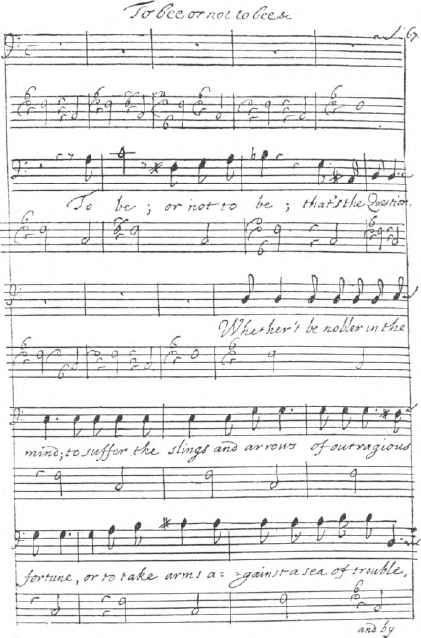 To bee or not to bee &c
67
To be ; or not to be ; that's the Question.
Whether't be nobler in the
mind; to suffer the slings and arrows of outragious
fortune, or to take arms a= =gainst a sea of trouble,
and by